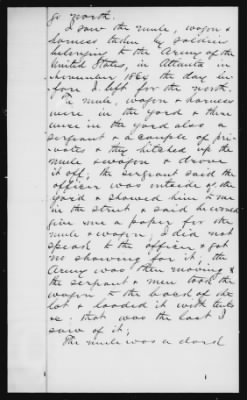 go north.
I saw the mule, wagon &
harness taken by soldiers
belonging to the Army of the
United States, in Atlanta in
November 1864 the day be-
fore I left for the north.
The mule, wagon & harness
were in the yard & there
were in the yard also a
serjeant & a couple of pri-
vates & they hitched up the
mule & wagon & drove
it off; the serjeant said the
officer was outside of the
yard & showed him to me
in the street & said he would
give me a paper for the
mule & wagon, I did not
speak to the officer & got
no showing for it; the
Army was then moving &
the serjeant & men took the
wagon to the back of the
lot & loaded it with tents
&c. that was the last I
saw of it;
The mule was a dark